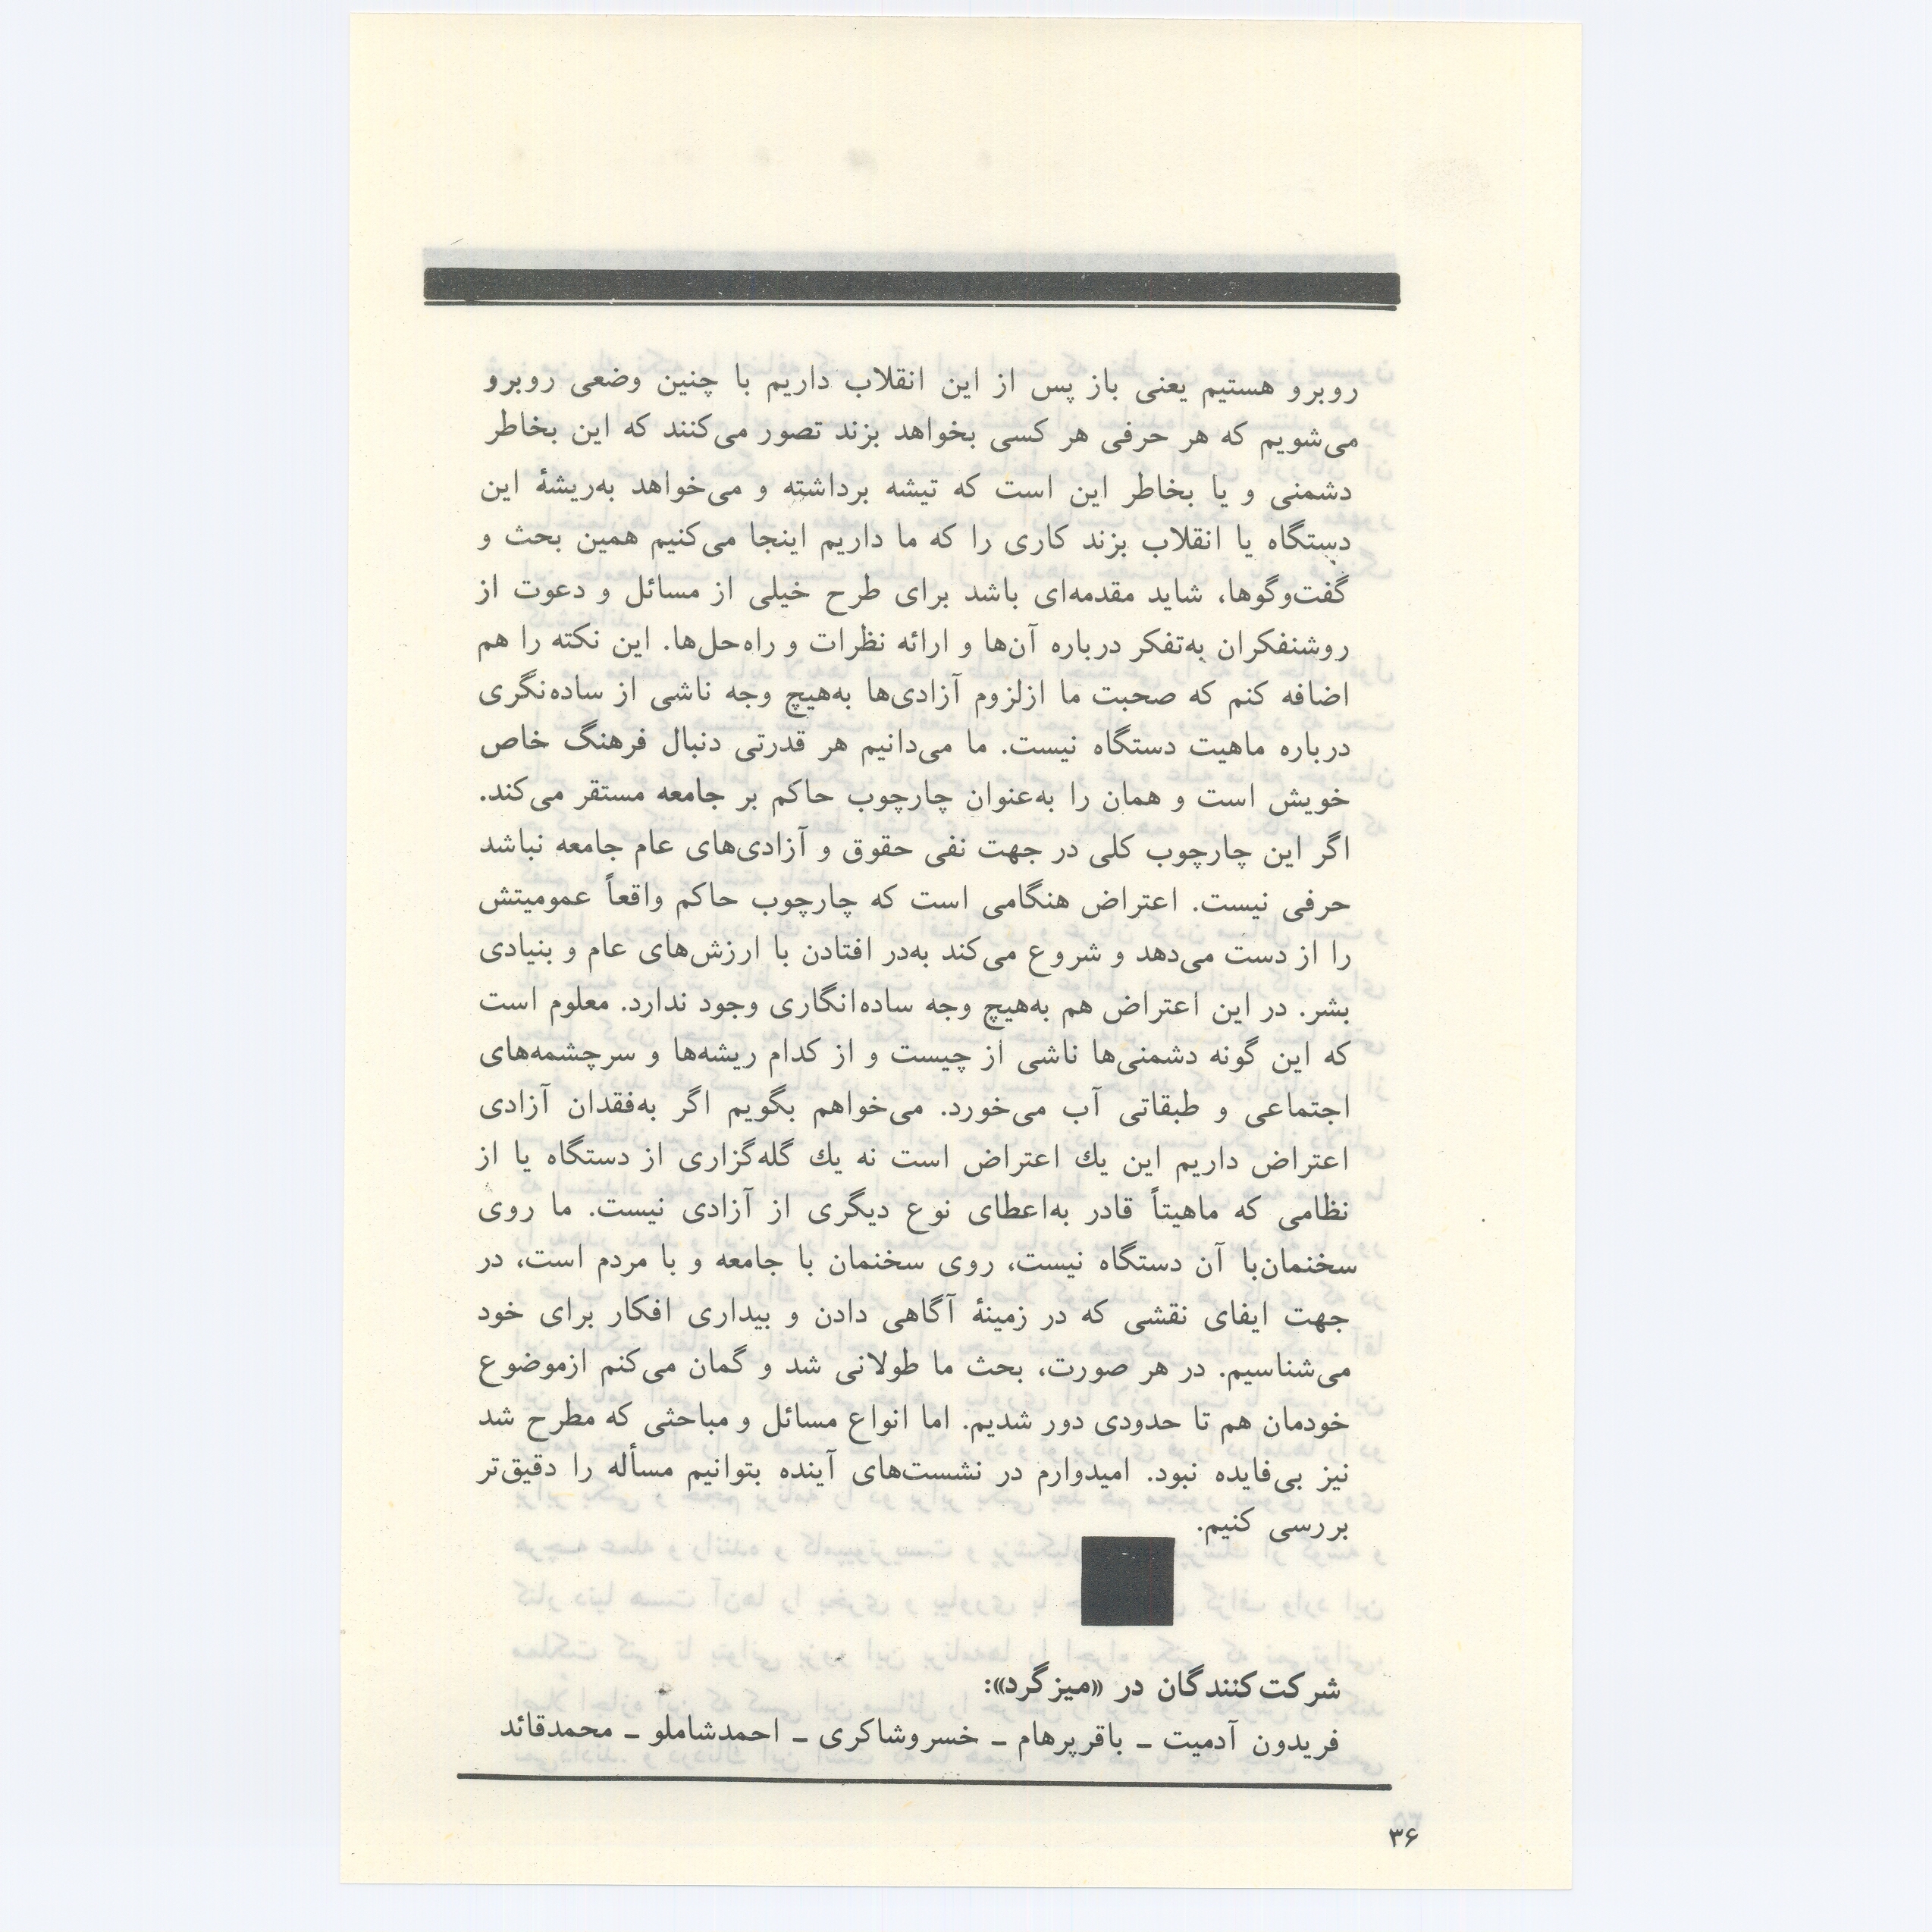 روبرو هستیم یعنی باز پس از این انقلاب داریم با چنین وضعی روبرو
می‌شویم که هر حرفی هر کسی بخواهد بزند تصور می‌کنند که این بخاطر
دشمنی و یا بخاطر این است که تیشه برداشته و می‌خواهد به‌ریشهٔ این
دستگاه یا انقلاب بزند کاری را که ما داریم اینجا می‌کنیم همین بحث و
گفت‌وگوها، شاید مقدمه‌ای باشد برای طرح خیلی از مسائل و دعوت از
روشنفکران به‌تفکر درباره آن‌ها و ارائه نظرات و راه‌حل‌ها. این نکته را هم
اضافه کنم که صحبت ما ازلزوم آزادی‌ها به‌هیچ وجه ناشی از ساده‌نگری
درباره ماهیت دستگاه نیست. ما می‌دانیم هر قدرتی دنبال فرهنگ خاص
خویش است و همان را به‌عنوان چارچوب حاکم بر جامعه مستقر می‌کند.
اگر این چارچوب کلی در جهت نفی حقوق و آزادی‌های عام جامعه نباشد
حرفی نیست. اعتراض هنگامی است که چارچوب حاکم واقعاً عمومیتش
را از دست می‌دهد و شروع می‌کند به‌در افتادن با ارزش‌های عام و بنیادی
بشر. در این اعتراض هم به‌هیچ وجه ساده‌انگاری وجود ندارد. معلوم است
که این گونه دشمنی‌ها ناشی از چیست و از کدام ریشه‌ها و سرچشمه‌های
اجتماعی و طبقاتی آب می‌خورد. می‌خواهم بگویم اگر به‌فقدان آزادی
اعتراض داریم این یك اعتراض است نه یك گله‌گزاری از دستگاه یا از
نظامی که ماهیتاً قادر به‌اعطای نوع دیگری از آزادی نیست. ما روی
سخنمان‌با آن دستگاه نیست، روی سخنمان با جامعه و با مردم است، در
جهت ایفای نقشی که در زمینهٔ آگاهی دادن و بیداری افکار برای خود
می‌شناسیم. در هر صورت، بحث ما طولانی شد و گمان می‌کنم ازموضوع
خودمان هم تا حدودی دور شدیم. اما انواع مسائل و مباحثی که مطرح شد
نیز بی‌فایده نبود. امیدوارم در نشست‌های آینده بتوانیم مسأله را دقیق‌تر
بررسی کنیم.
شرکت‌کنندگان در «میزگرد»:
فریدون آدمیت ـ باقرپرهام ـ خسروشاکری ـ احمدشاملو ـ محمدقائد
۳۶